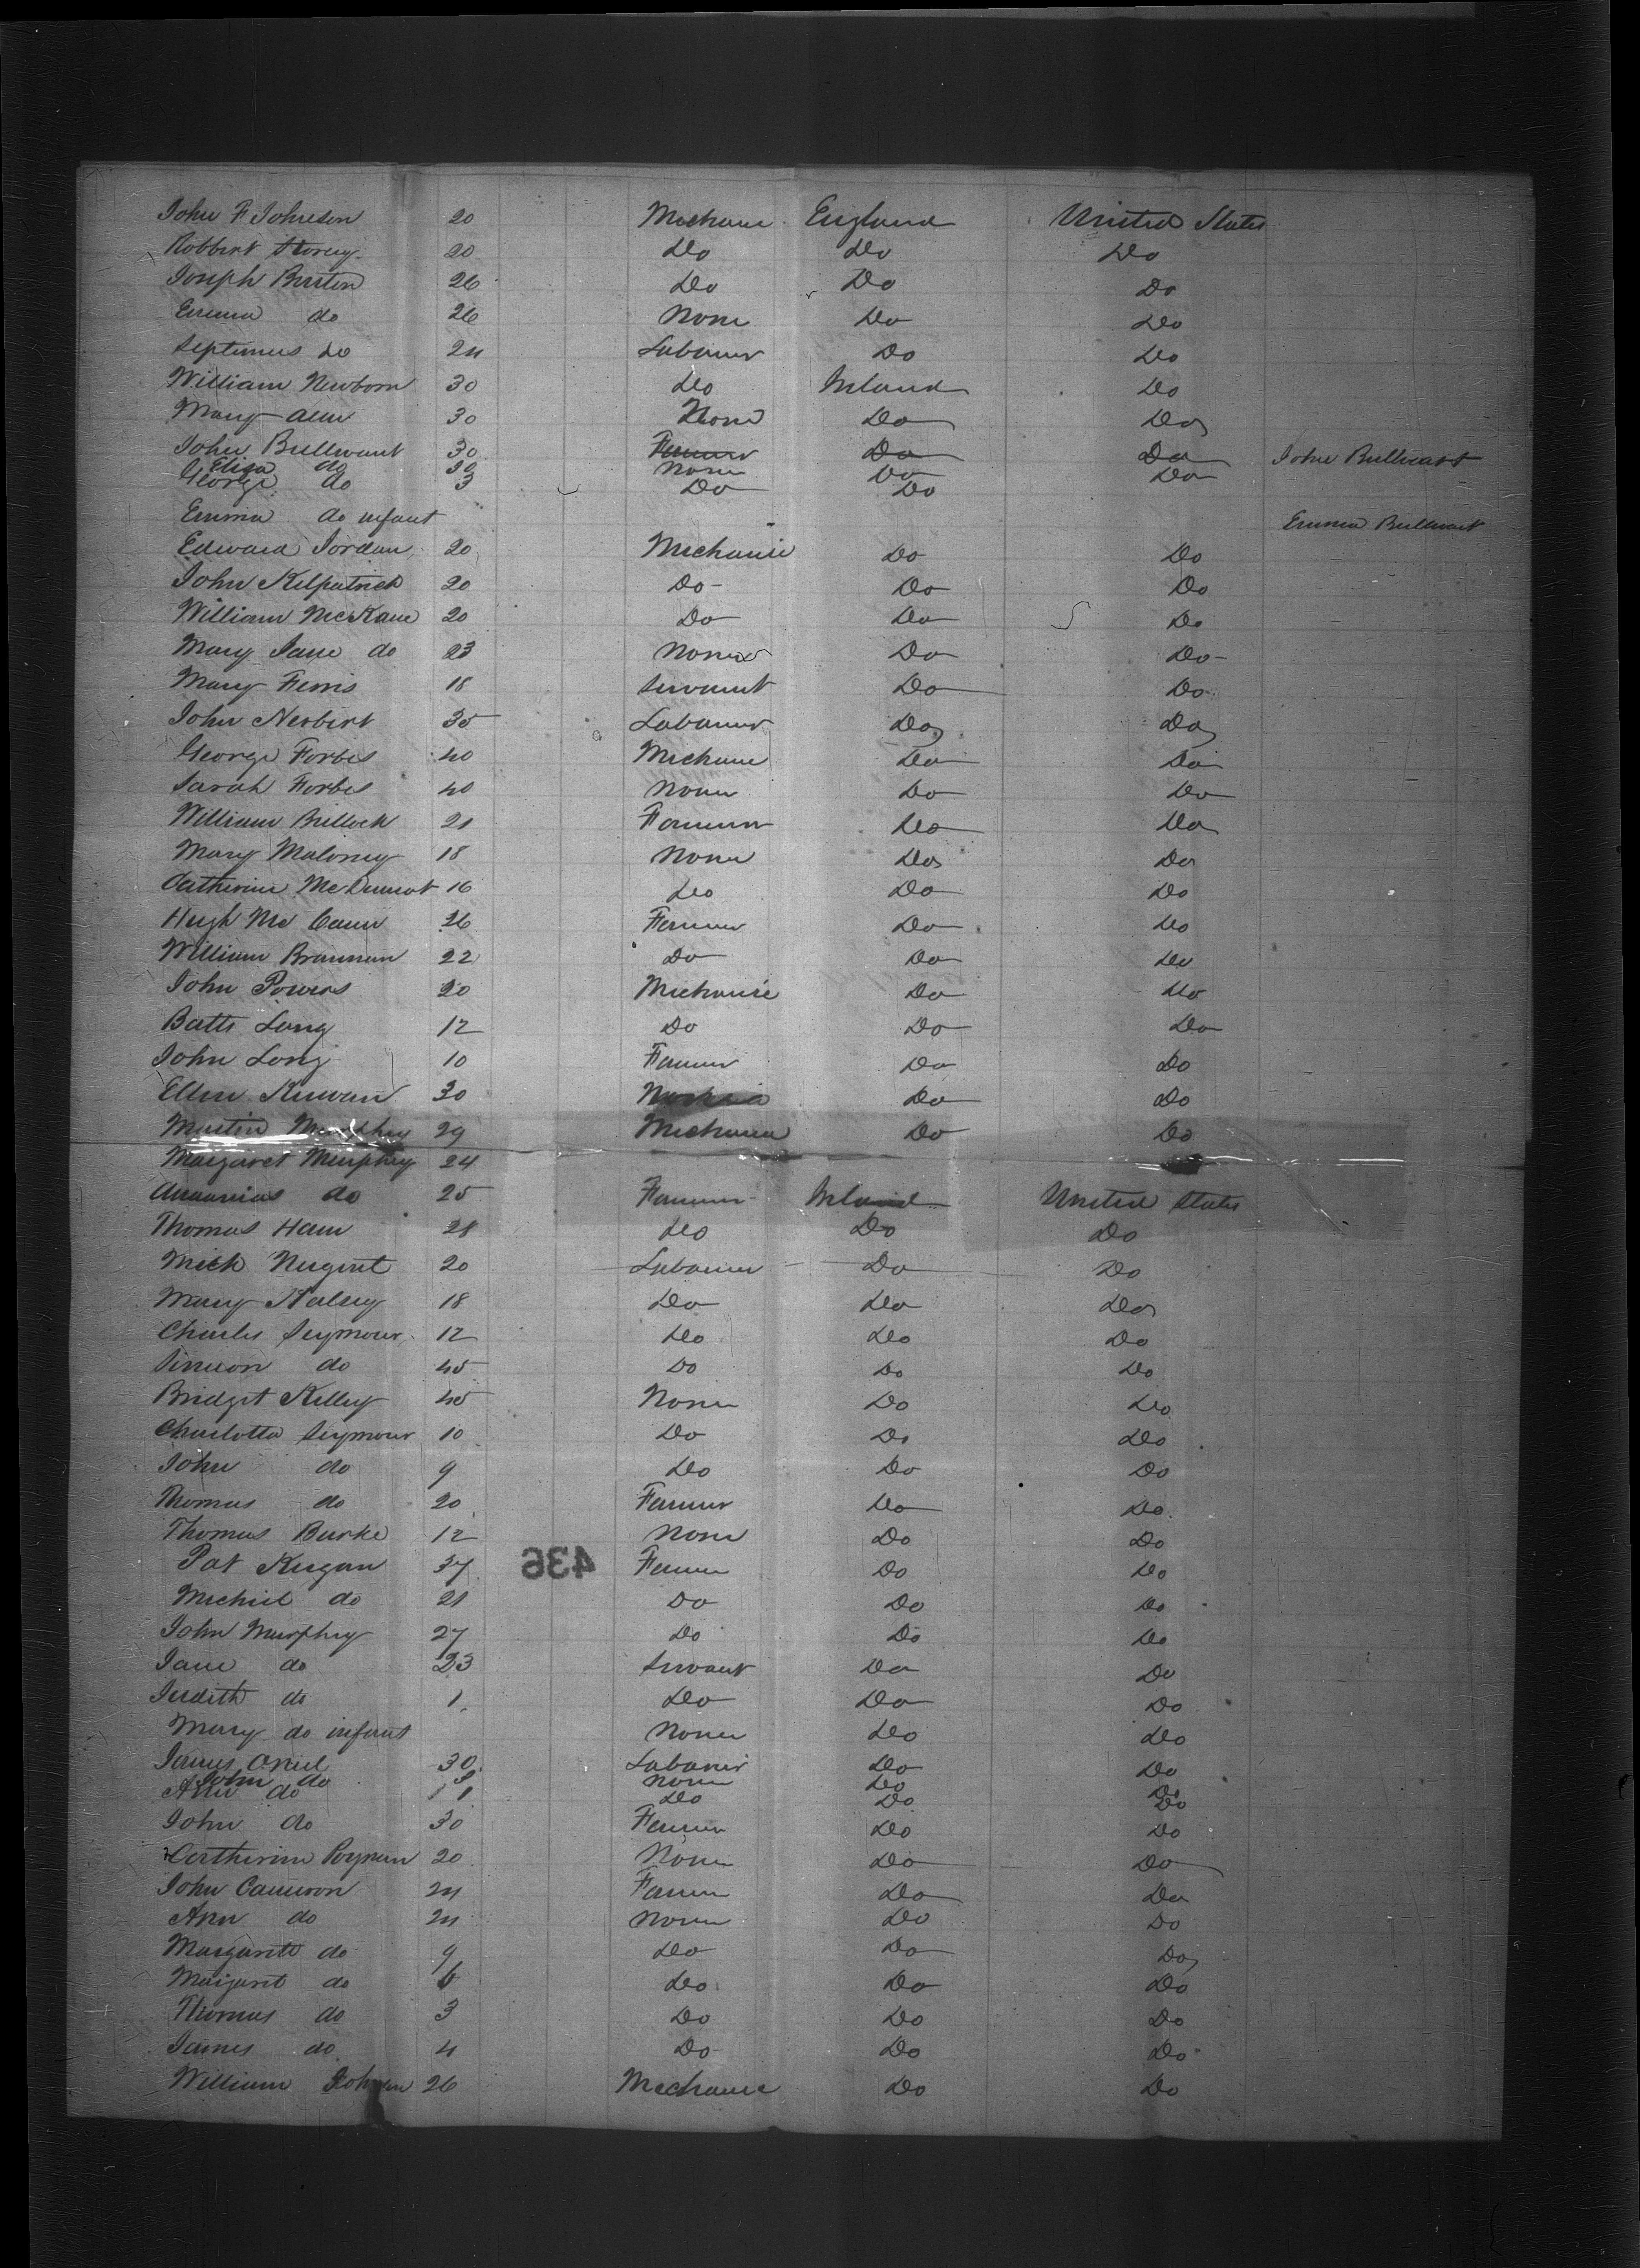 John F Johnson 20 Mechanic England United States
Robbert Storey 20 Do Do Do
Joseph Burton 26 Do Do Do
Emma do 26 None Do Do
Septimus do 24 Labourer Do Do
William Newborn 30 Do Ireland Do
Mary Ann 30 None Do Do
John Bullivant 30 Farmer Do Do John Bullivant
Eliza do 30 None Do Do
George do 3 Do Do
Emma do infant Emma Bullivant
Edward Jordan 20 Mechanic Do Do
John Kilpatrick 20 Do Do Do
William McKane 20 Do Do Do
Mary Jane do 23 None Do Do
Mary Ferris 18 Servant Do Do
John Nesbirt 35 Labourer Do Do
George Forbes 40 Mechanic Do Do
Sarah Forbes 40 None Do Do
William Bullock 21 Farmer Do Do
Mary Maloney 18 None Do Do
Catherine McDermot 16 Do Do Do
Hugh Mc Cann 26 Farmer Do Do
William Brannan 22 Do Do Do
John Powers 20 Mechanic Do Do
Batts Long 12 Do Do Do
John Long 10 Farmer Do Do
Ellen Kirwan 30 Do Do
Martin Murphey 29 Mechanic Do Do
Margaret Murphey 24
Annanias do 25 Farmer Ireland United States
Thomas Ham 21 Do Do Do
Mick Nugent 20 Labourer Do Do
Mary Halsey 18 Do Do Do
Charles Seymour 12 Do Do Do
Simeon do 45 Do Do Do
Bridget Kelley 45 None Do Do
Charlotta Seymour 10 Do Do Do
John do 9 Do Do Do
Thomas do 20 Farmer Do Do
Thomas Burke 12 None Do Do
Pat Keegan 37 436 Farmer Do Do
Michiel do 21 Do Do Do
John Murphey 27 Do Do Do
Jane do 23 Servant Do Do
Judith do 1 Do Do Do
Mary do infant None Do Do
James Oniel 30 Labourer Do Do
John do 3 None Do Do
Ann do 11 Do Do Do
John do 30 Farmer Do Do
Catherine 20 None Do Do
John Cameron 24 Farmer Do Do
Ann do 24 None Do Do
Margarett do 9 Do Do Do
Margaret do 6 Do Do Do
Thomas do 3 Do Do Do
James do 4 Do Do Do
William Johnson 26 Mechanic Do Do